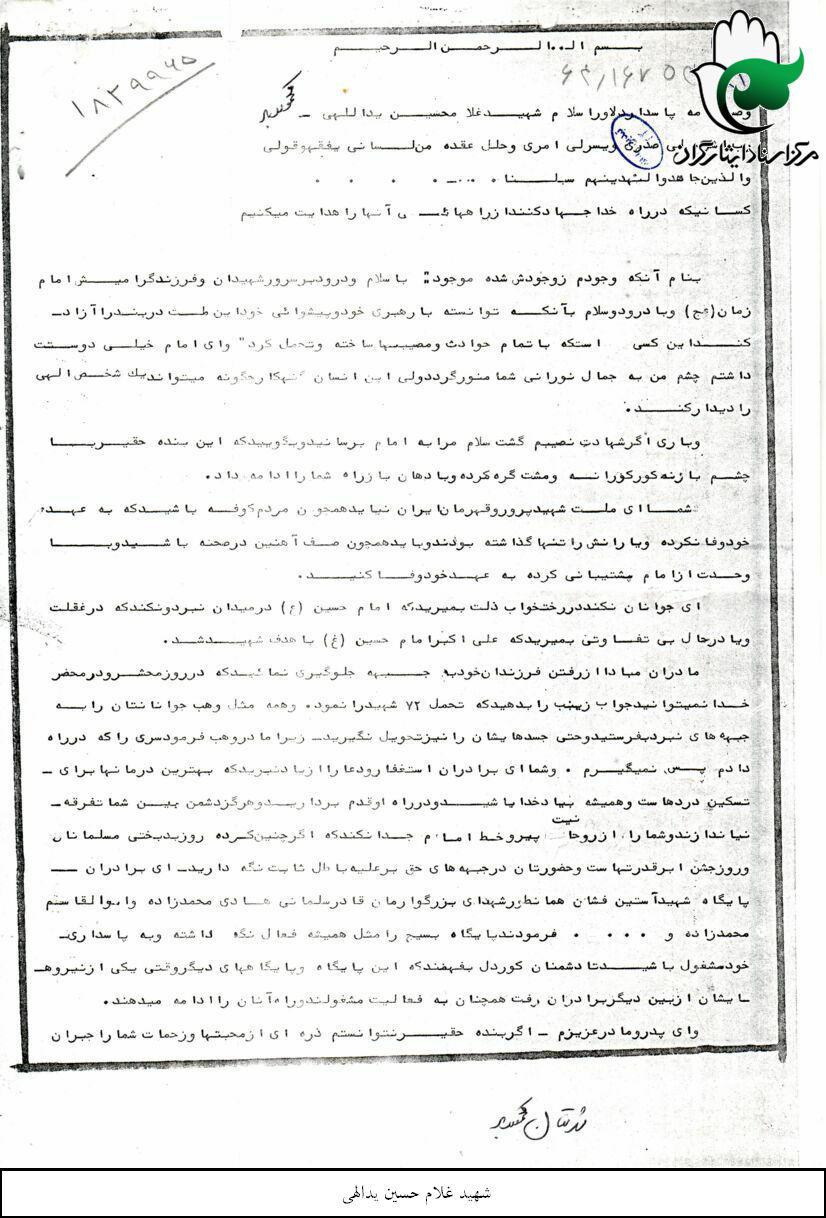 بسم الله الرحمن الرحیم
۱۸۳۹۹۶۵
مرکز اسناد ایثارگران
وصیتنامه پاسدار دلاور اسلام شهید غلا محسین یداللهی -
رب اشرح لی صدری ویسرلی امری وحلل عقده من لسانی یفقهوقولی
والذین جاهدوا لنهدینهم سبلنا . . . . . .
کسانیکه درراه خدا جهادکنندازراههائی آنهارا هدایت میکنیم
بنام آنکه وجودم زوجودش شده موجود: باسلام ودرودبرسرورشهیدان وفرزندگرامیش امام
زمان(عج) وبادرودوسلام بآنکه توانسته بارهبری خودوپیشوائی خوداین ملت دربندرا آزاد
کنداین کسی استکه باتمام حوادث ومصیبتها ساخته وتحمل کرد" وای امام خیلی دوستت
داشتم چشم من به جمال نورانی شما منورگرددولی این انسان گنهکارچگونه میتواندیك شخص الهی
را دیدارکند.
وباری اگرشهادت نصیبم گشت سلام مرا به امام برسانیدوبگوییدکه این بنده حقیربا
چشم بازنه کورکورانه ومشت گره کرده وبادهان بازراه شمارا ادامه داد.
شما ای ملت شهیدپروروقهرمان ایران نبایدهمچون مردم کوفه باشیدکه به عهد
خودوفانکرده ویارانش راتنهاگذاشته بودندوبایدهمچون صف آهنین درصحنه باشیدوبا
وحدت ازامام پشتیبانی کرده به عهدخودوفاکنید.
ای جوانان نکنددررختخواب ذلت بمیریدکه امام حسین (ع) درمیدان نبردونکندکه درغفلت
ویادرحال بی تفاوتی بمیریدکه علی اکبرامام حسین (ع) باهدف شهیدشد.
مادران مبادا ازرفتن فرزندان خودبه جبهه جلوگیری نمائیدکه درروزمحشرودرمحضر
خدانمیتوانیدجواب زینب رابدهیدکه تحمل ۷۲ شهیدرانمود. وهمه مثل وهب جوانانتان رابه
جبهه های نبردبفرستیدوحتی جسدهایشان رانیزتحویل نگیرید- زیرامادروهب فرمودسری راکه درراه
دادم پس نمیگیرم . وشما ای برادران استغفارودعارا ازیادنبریدکه بهترین درمانهابرای -
تسکین دردهاست وهمیشه بیادخدا باشیدودرراه اوقدم برداریدوهرگزدشمن بین شماتفرقه -
نیاندازدوشمارا ازروحانیت پیروخط امام جدانکندکه اگرچنین کرده روزبدبختی مسلمانان
وروزجشن ابرقدرتهاست وحضورتان درجبهه های حق برعلیه باطل ثابت نگه دارید- ای برادران
پایگاه شهیدآستین فشان همانطورشهدای بزرگوارمان قادرسلمانی هادی محمدزاده وابوالقاسم
محمدزاده و . . . . فرمودندپایگاه بسیج رامثل همیشه فعال نگه داشته وبه پاسداری -
خودمشغول باشیدتادشمنان کوردل بفهمندکه این پایگاه وپایگاههای دیگروقتی یکی ازنیروه
ایشان ازبین دیگربرادران رفت همچنان به فعالیت مشغولندوراه آنان راادامه میدهند.
وای پدرومادرعزیزم - اگربنده حقیرنتوانستم ذره ای ازمحبتهاوزحمات شماراجبران
شهید غلام حسین یدالهی